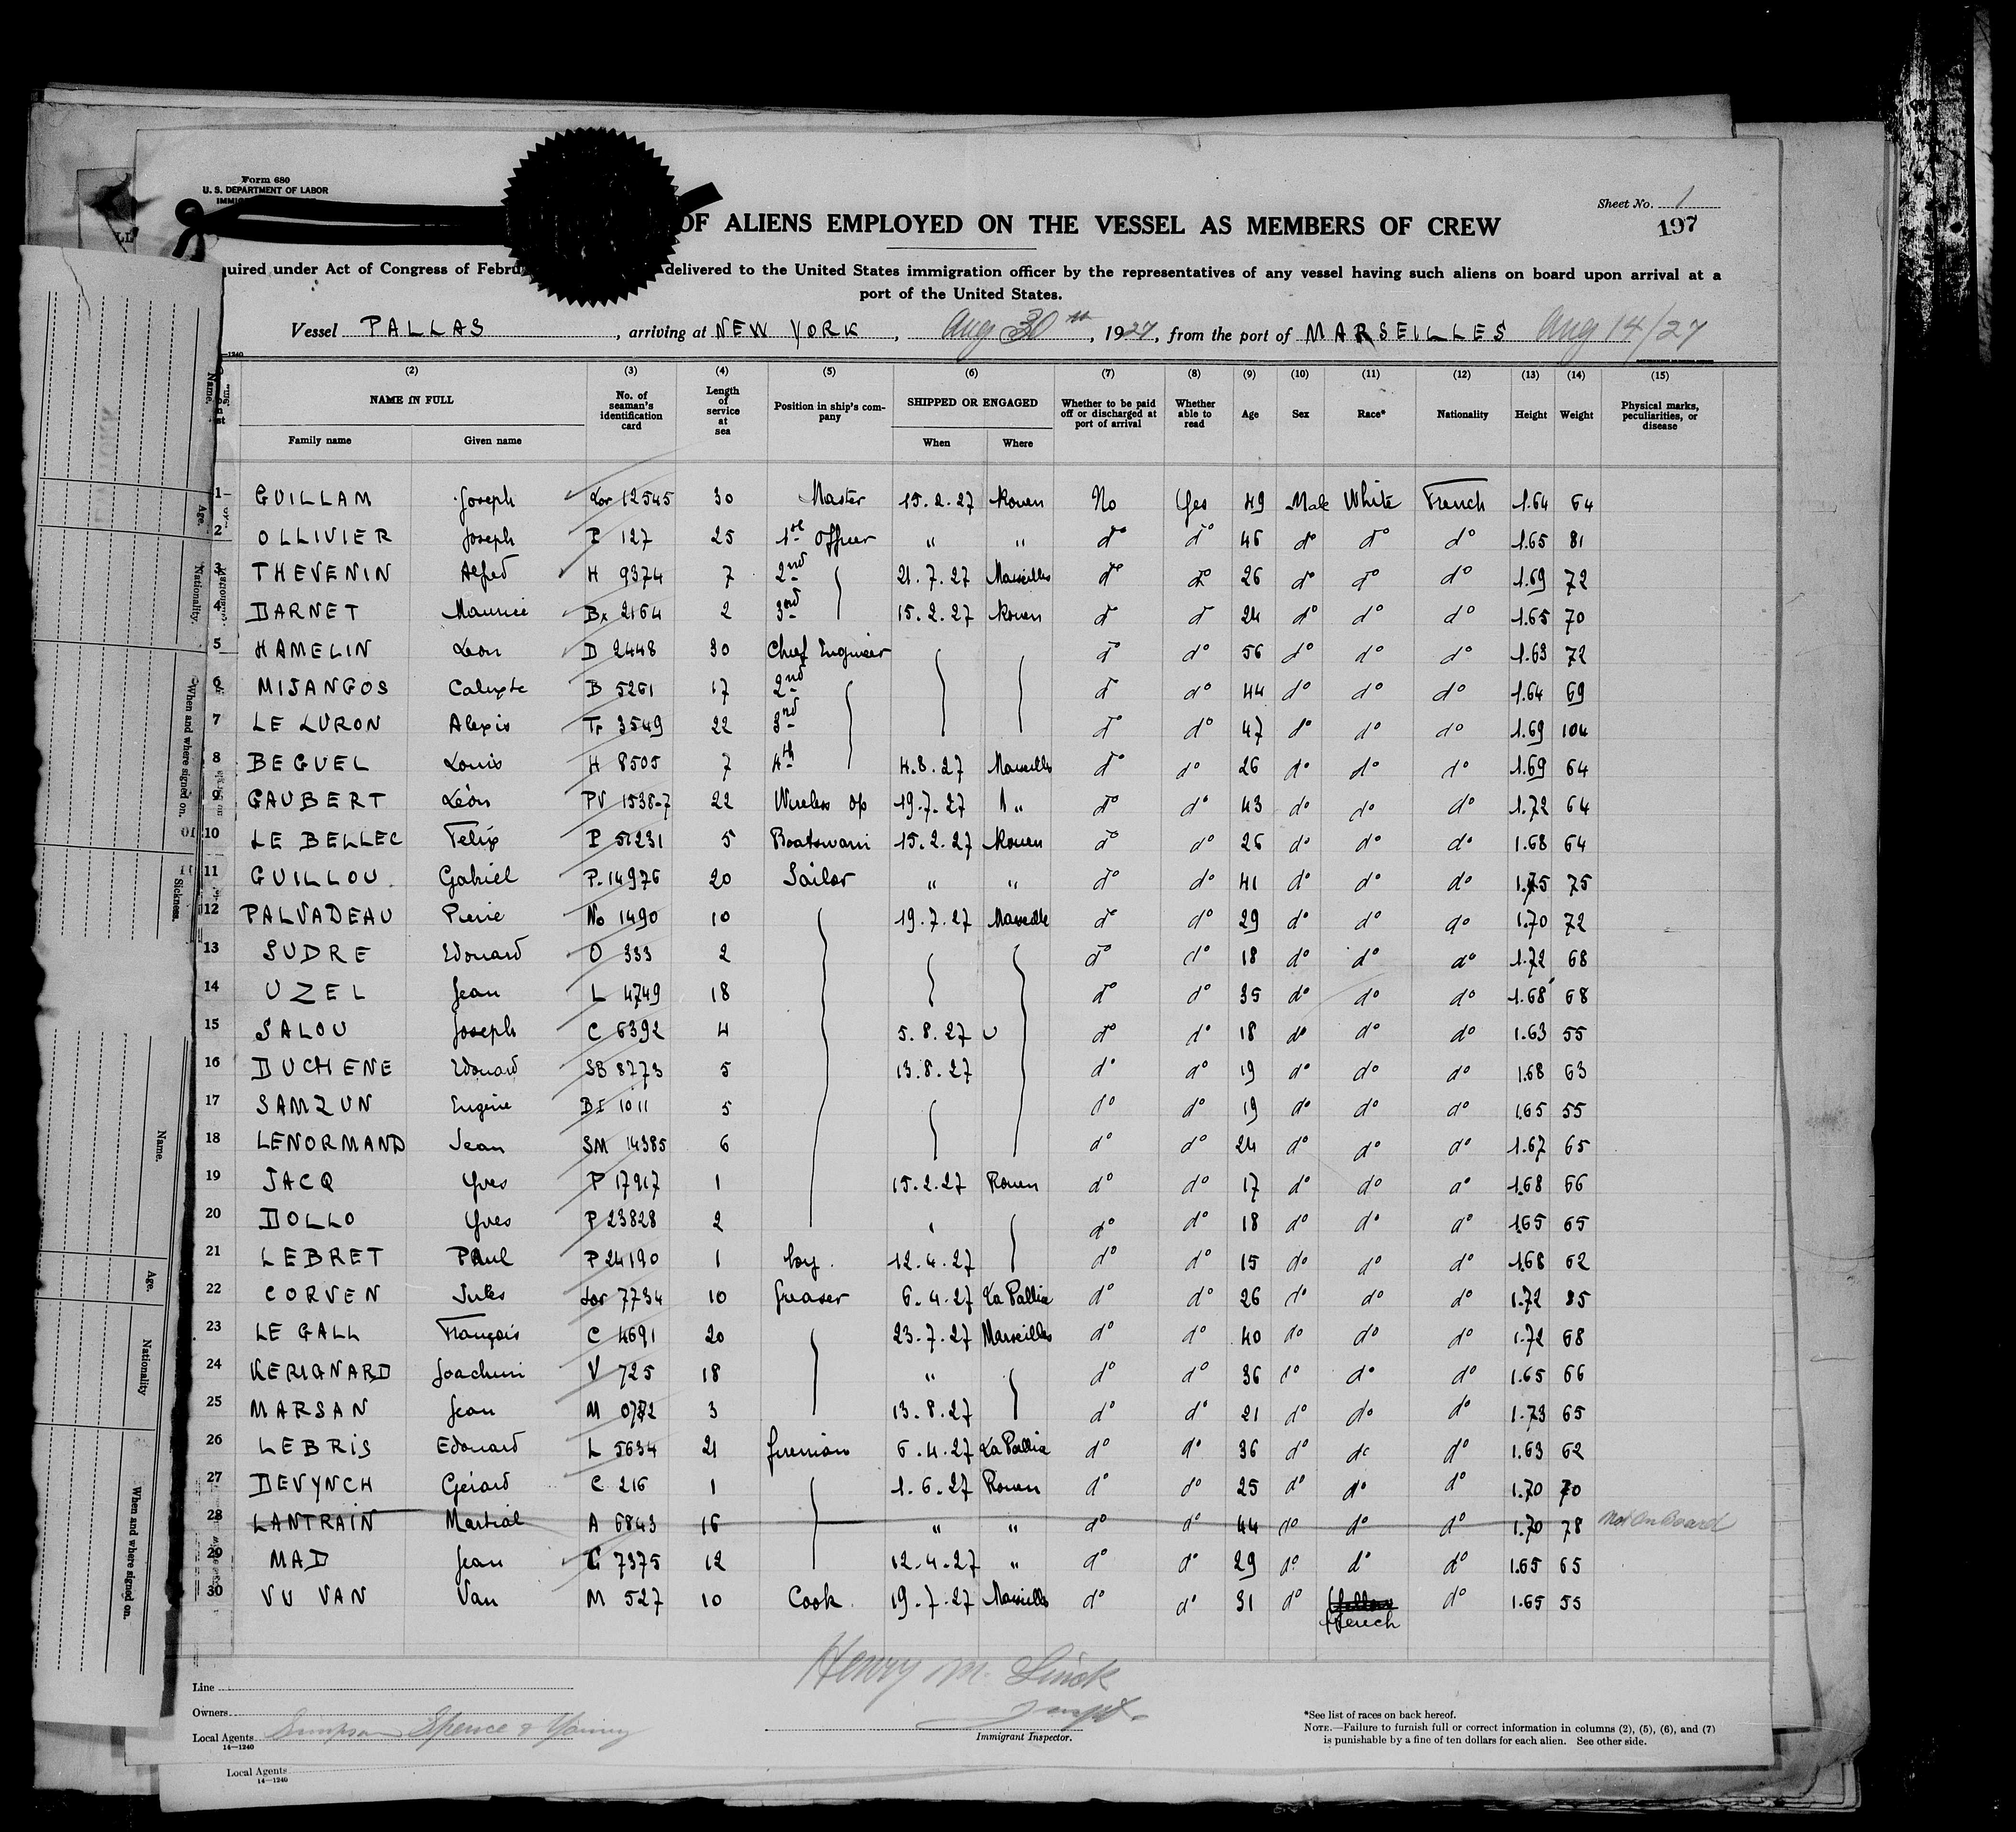 Form 680
U. S. DEPARTMENT OF LABOR
Sheet No. 1
197
OF ALIENS EMPLOYED ON THE VESSEL AS MEMBERS OF CREW
uired under Act of Congress of Febru delivered to the United States immigration officer by the representatives of any vessel having such aliens on board upon arrival at a
port of the United States.
Vessel PALLAS, arriving at NEW YORK, Aug 30th, 1927, from the port of MARSEILLES Aug 14/27
(2) (3) (4) (5) (6) (7) (8) (9) (10) (11) (12) (13) (14) (15)
NAME IN FULL No. of seaman's identification card Length of service at sea Position in ship's company SHIPPED OR ENGAGED Whether to be paid off or discharged at port of arrival Whether able to read Age Sex Race* Nationality Height Weight Physical marks, peculiarities, or disease
Family name Given name When Where
1 GUILLAM Joseph Lor 12545 30 Master 15.2.27 Rouen No Yes 49 Male White French 1.64 64
2 OLLIVIER Joseph P 127 25 1st Officer " " do do 46 do do do 1.65 81
3 THEVENIN Alfred H 9374 7 2nd 21.7.27 Marseilles do do 26 do do do 1.69 72
4 DARNET Maurice Bx 2164 2 3rd 15.2.27 Rouen do do 24 do do do 1.65 70
5 HAMELIN Leon D 2448 30 Chief Engineer do do 56 do do do 1.63 72
6 MIJANGOS Calixte B 5261 17 2nd do do 44 do do do 1.64 69
7 LE LURON Alexis Tr 3549 22 3rd do do 47 do do do 1.69 104
8 BEGUEL Louis H 8505 7 4th 4.8.27 Marseilles do do 26 do do do 1.69 64
9 GAUBERT Léon PV 1538-7 22 Wireless op 19.7.27 " do do 43 do do do 1.72 64
10 LE BELLEC Felix P 51231 5 Boatswain 15.2.27 Rouen do do 26 do do do 1.68 64
11 GUILLOU Gabriel P.14976 20 Sailor " " do do 41 do do do 1.75 75
12 PALVADEAU Pierre No 1490 10 19.7.27 Marseille do do 29 do do do 1.70 72
13 SUDRE Edouard O 333 2 do do 18 do do do 1.72 68
14 UZEL Jean L 4749 18 do do 35 do do do 1.68 68
15 SALOU Joseph C 6392 4 5.8.27 do do 18 do do do 1.63 55
16 DUCHENE Edouard SB 8773 5 13.8.27 do do 19 do do do 1.68 63
17 SAMZUN Eugène BI 1011 5 do do 19 do do do 1.65 55
18 LENORMAND Jean SM 14385 6 do do 24 do do do 1.67 65
19 JACQ Yves P 17917 1 15.2.27 Rouen do do 17 do do do 1.68 66
20 DOLLO Yves P 23828 2 do do 18 do do do 1.65 65
21 LEBRET Paul P 24190 1 boy. 12.4.27 do do 15 do do do 1.68 62
22 CORVEN Jules Lor 7734 10 greaser 6.4.27 La Pallice do do 26 do do do 1.72 85
23 LE GALL François C 4691 20 23.7.27 Marseilles do do 40 do do do 1.72 68
24 KERIGNARD Joachim V 725 18 " do do 36 do do do 1.65 66
25 MARSAN Jean M 0782 3 13.8.27 do do 21 do do do 1.73 65
26 LEBRIS Edouard L 5634 21 fireman 6.4.27 La Pallice do do 36 do do do 1.63 62
27 DEVYNCH Gérard C 216 1 1.6.27 Rouen do do 25 do do do 1.70 70
28 LANTRAIN Martial A 6843 16 " " do do 44 do do do 1.70 78 Not on Board
29 MAD Jean G 7375 12 12.4.27 " do do 29 do do do 1.65 65
30 VU VAN Van M 527 10 Cook 19.7.27 Marseilles do do 31 do Yellow French do 1.65 55
Line
Owners
Local Agents Simpson Spence & Young
14—1240
Henry M.
Immigrant Inspector.
*See list of races on back hereof.
NOTE.—Failure to furnish full or correct information in columns (2), (5), (6), and (7)
is punishable by a fine of ten dollars for each alien. See other side.
Local Agents
14—1240
Name.
Age.
Nationality.
When and where signed on.
Sickness.
Name.
Age.
Nationality
When and where signed on.